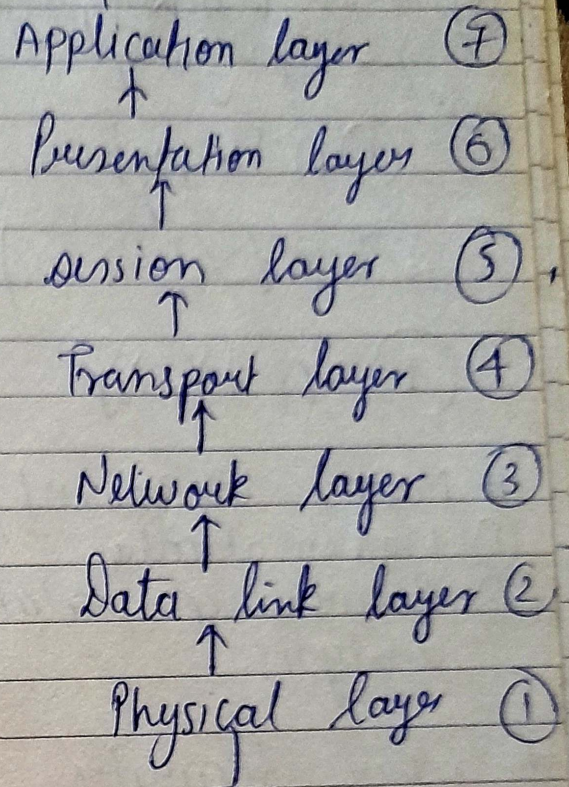 Application layer 7
Presentation layer 6
session layer 5
Transport layer 4
Network layer 3
Data link layer 2
Physical layer 1